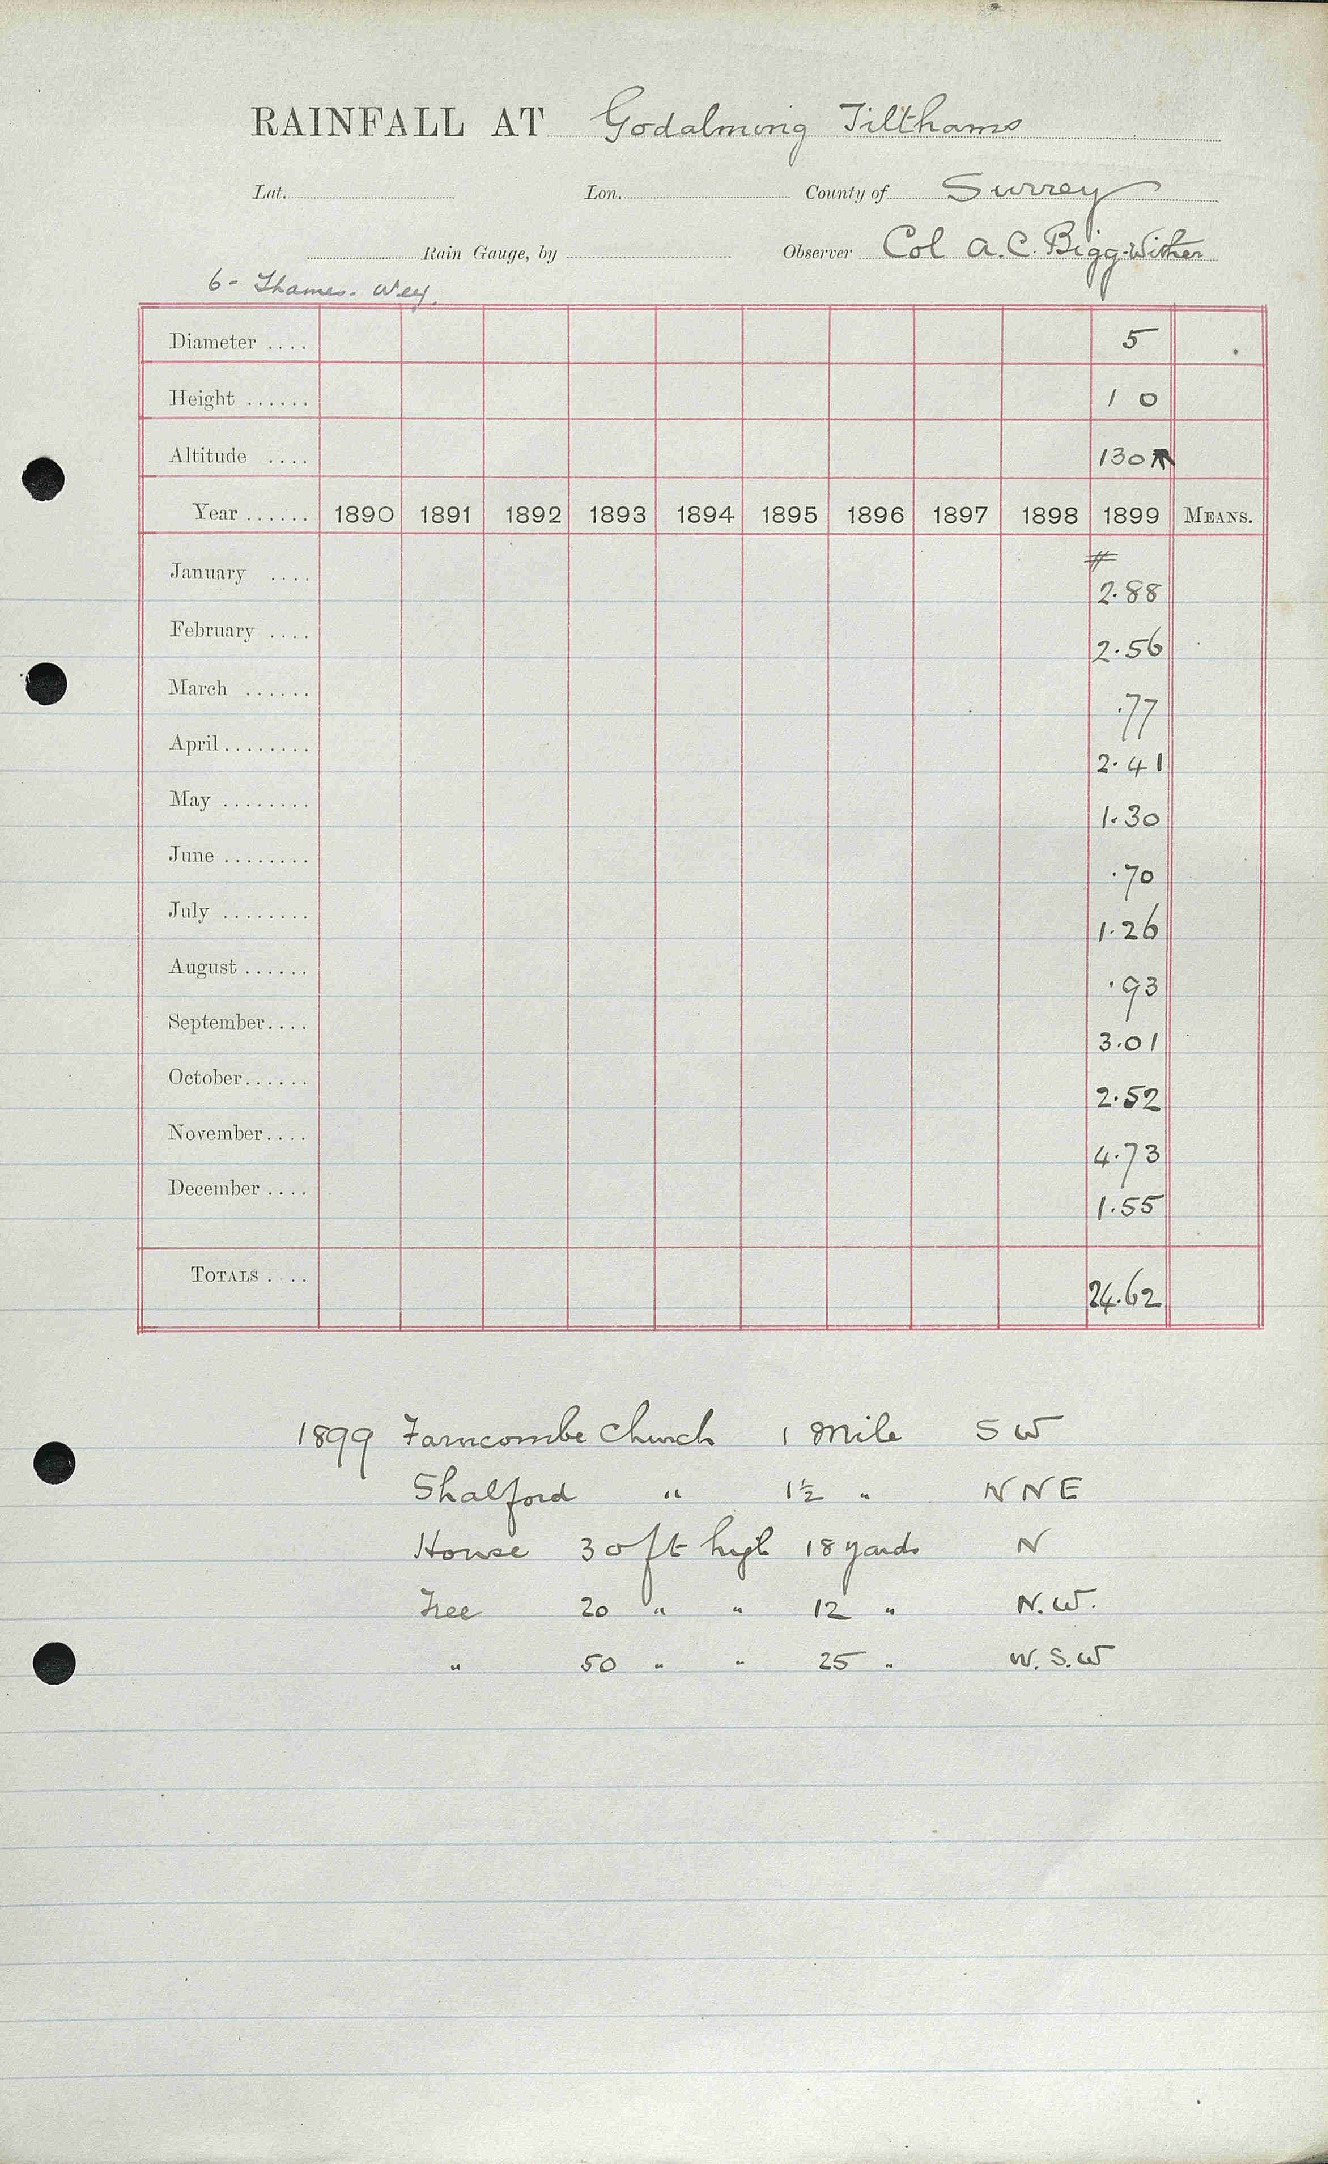 RAINFALL AT Godalming Tilthams
Lat. Lon. County of Surrey
Rain Gauge, by Observer Col A.C. Bigg-Wither
6 - Thames. Wey.
Diameter .... 5
Height ...... 1 0
Altitude .... 130
Year ...... 1890 1891 1892 1893 1894 1895 1896 1897 1898 1899 MEANS.
January .... 2.88
February .... 2.56
March ...... .77
April ........ 2.41
May ........ 1.30
June ........ .70
July ........ 1.26
August ...... .93
September.... 3.01
October...... 2.52
November.... 4.73
December .... 1.55
TOTALS .... 24.62
1899 Farncombe Church 1 Mile S W
Shalford " 1½ " N N E
House 30 ft high 18 yards N
Tree 20 " " 12 " N.W.
" 50 " " 25 " W.S.W